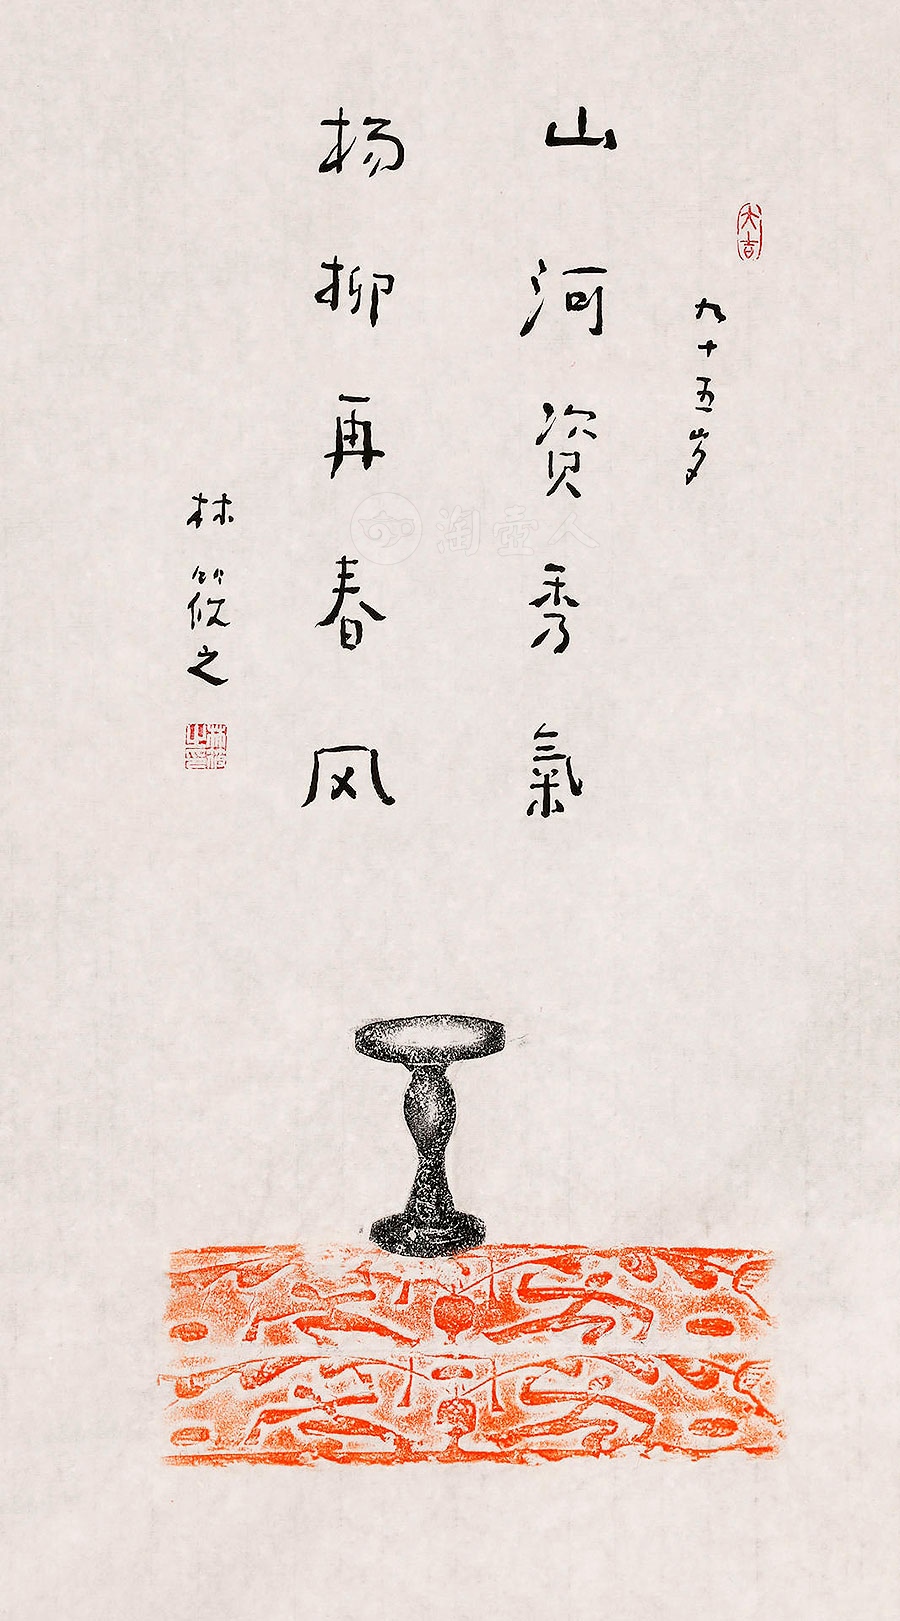 大吉
九十五岁
山河资秀氣
杨柳再春风
林筱之
林筱之印
淘壶人